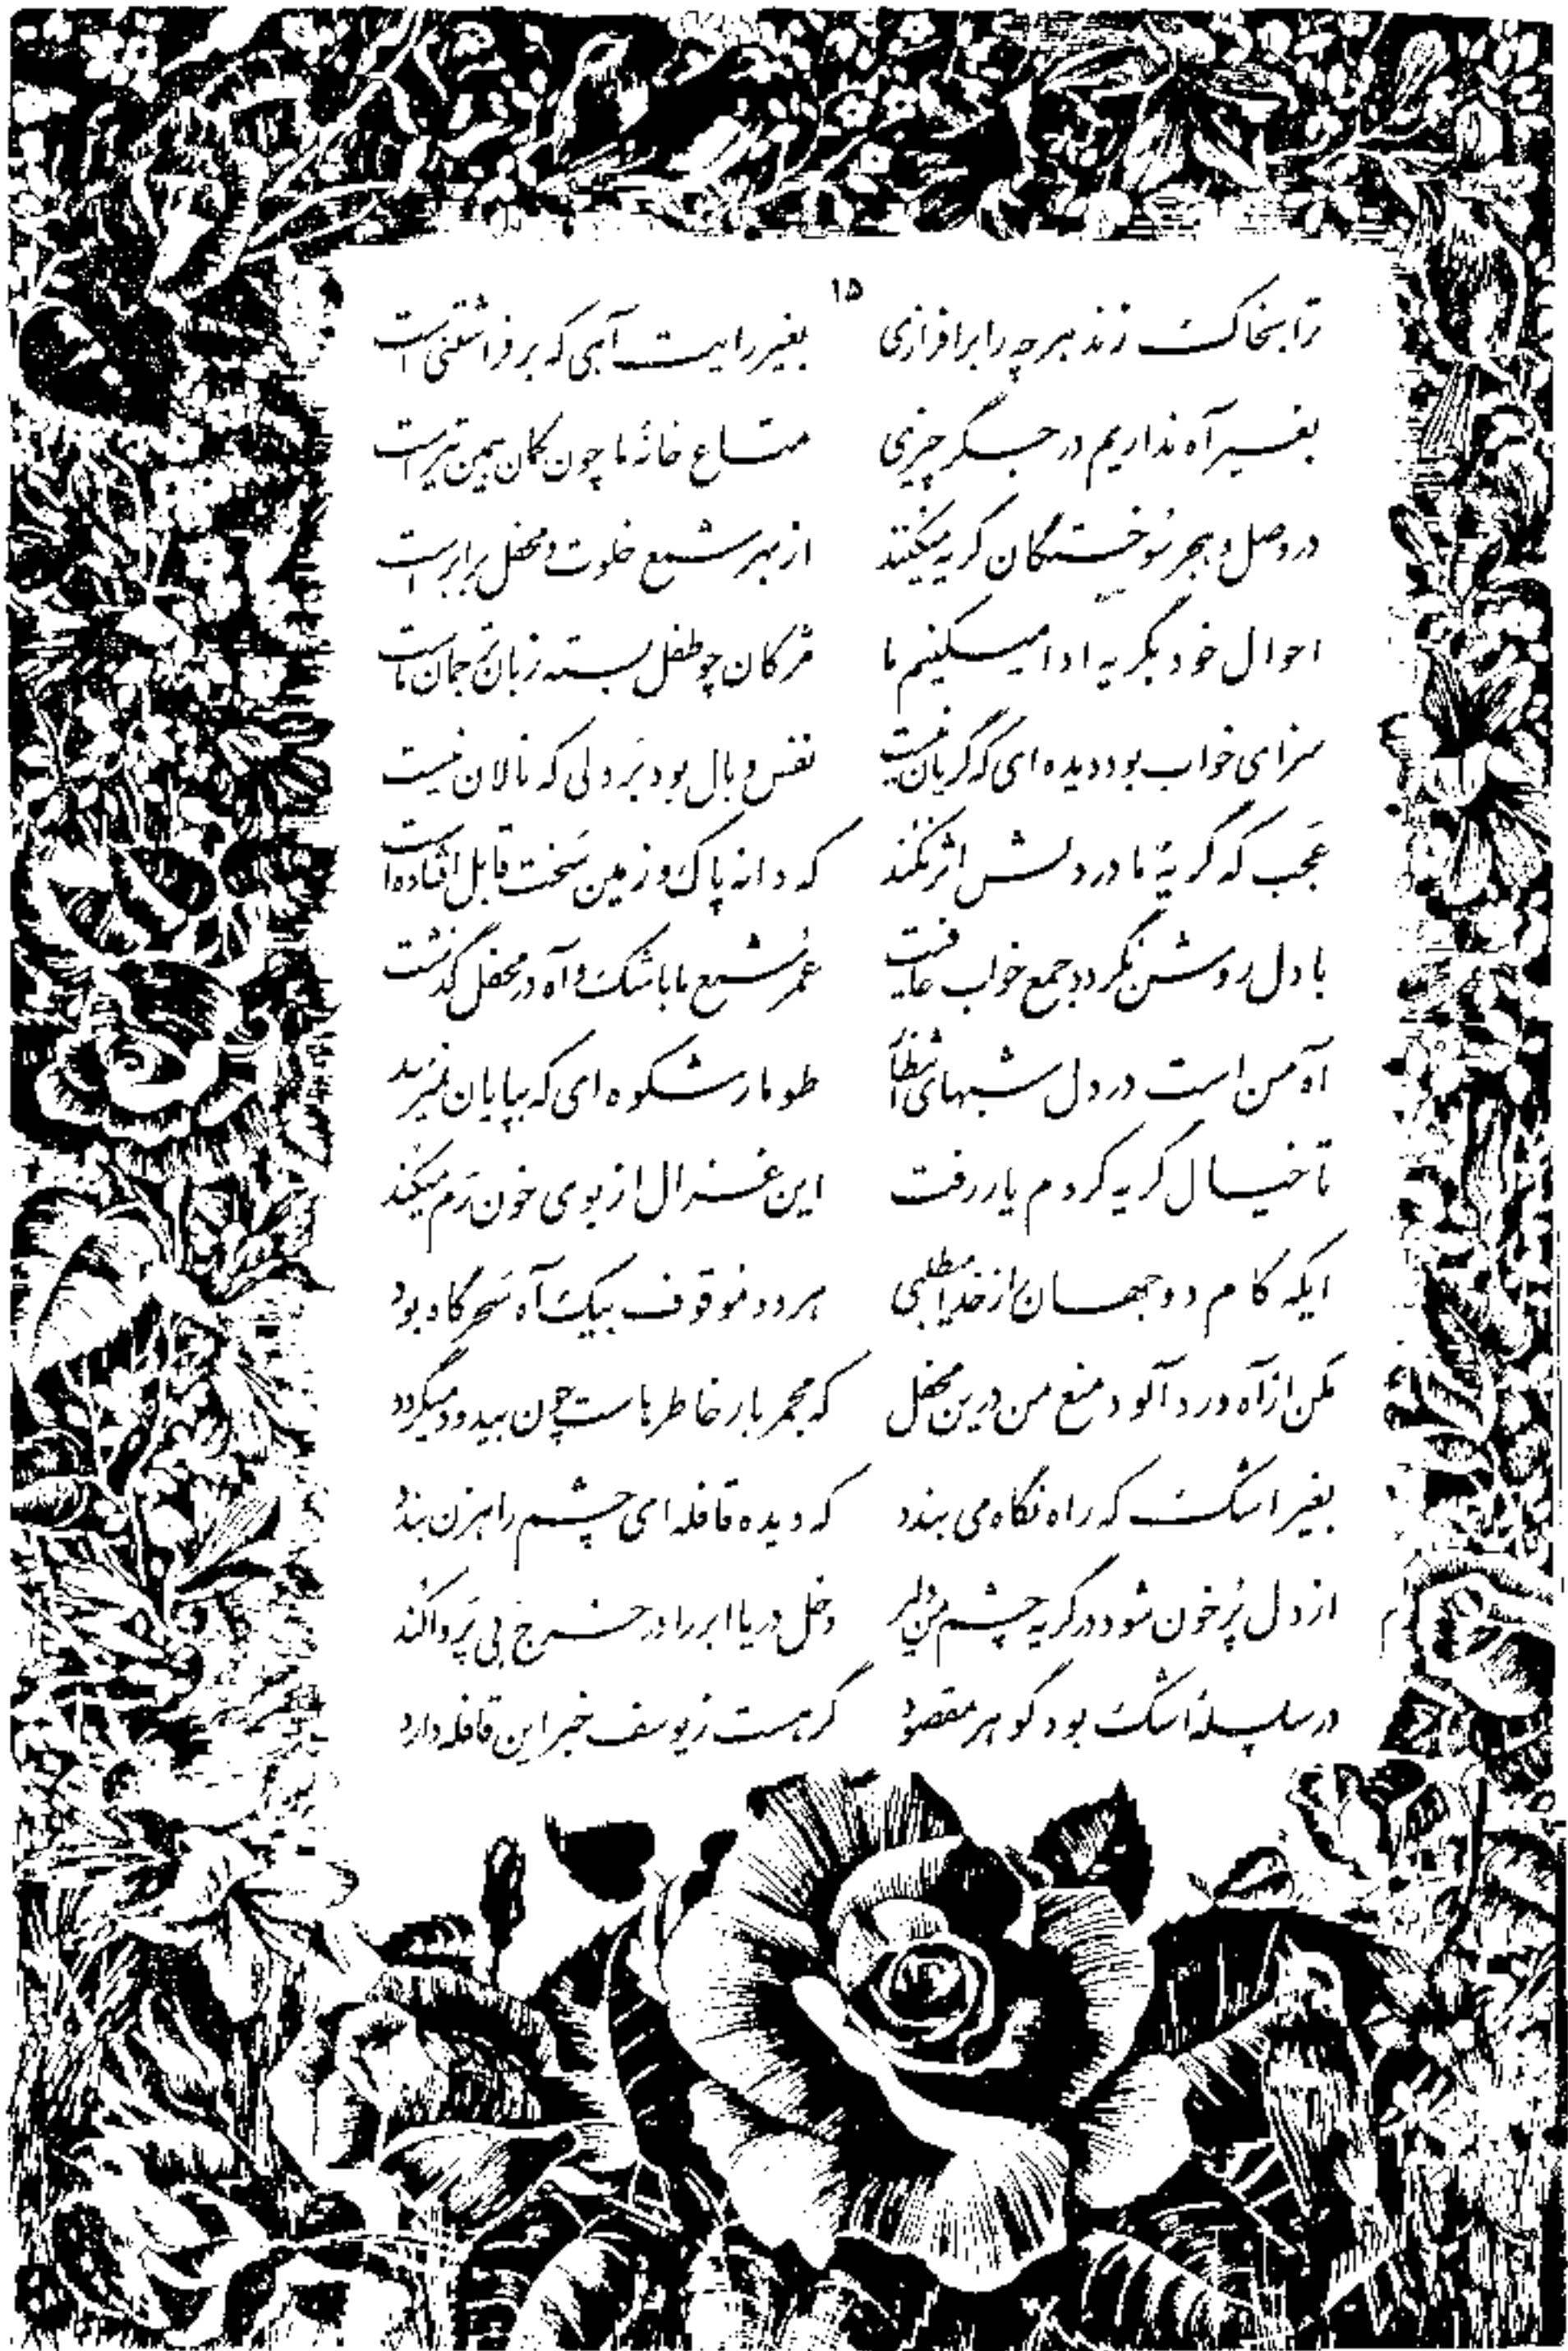 ۱۵
ترا بخاک زند هر چه را برافرازی بغیر رایت آهی که برفراشتنی است
بغیر آه نداریم در جگر چیزی متاع خانهٔ ما چون کمان همین تیر است
در وصل و هجر سوختگان گریه میکنند از بهر شمع خلوت و محفل برابر است
احوال خود بگریه ادا میکنیم ما مژگان چو طفل بسته زبان ترجمان ماست
سزای خواب بود دیده ای که گریان نیست نفس وبال بود بر دلی که نالان نیست
عجب که گریهٔ ما در دلش اثر نکند که دانه پاک و زمین سخت قابل افتاده است
با دل روشن نگردد جمع خواب عافیت عمر شمع ما باشک و آه در محفل گذشت
آه من است در دل شبهای انتظار طومار شکوه ای که بپایان نمیرسد
تا خیال گریه کردم یار رفت این غزال از بوی خون رم میکند
ایکه کام دو جهان از خدا مطلبی هر دو موقوف بیک آه سحرگاه بود
مکن از آه دردآلود منع من درین محفل که مجمر بار خاطرهاست چون بیدود میگردد
بغیر اشک که راه نگاه می بندد که دیده قافله ای چشم راهزن بندد
از دل پُرخون شود در گریه چشم من دلیر دخل دریا ابر را در خرج بی پَروا کند
در سلسلهٔ اشک بود گوهر مقصود گر هست ز یوسف خبر این قافله دارد